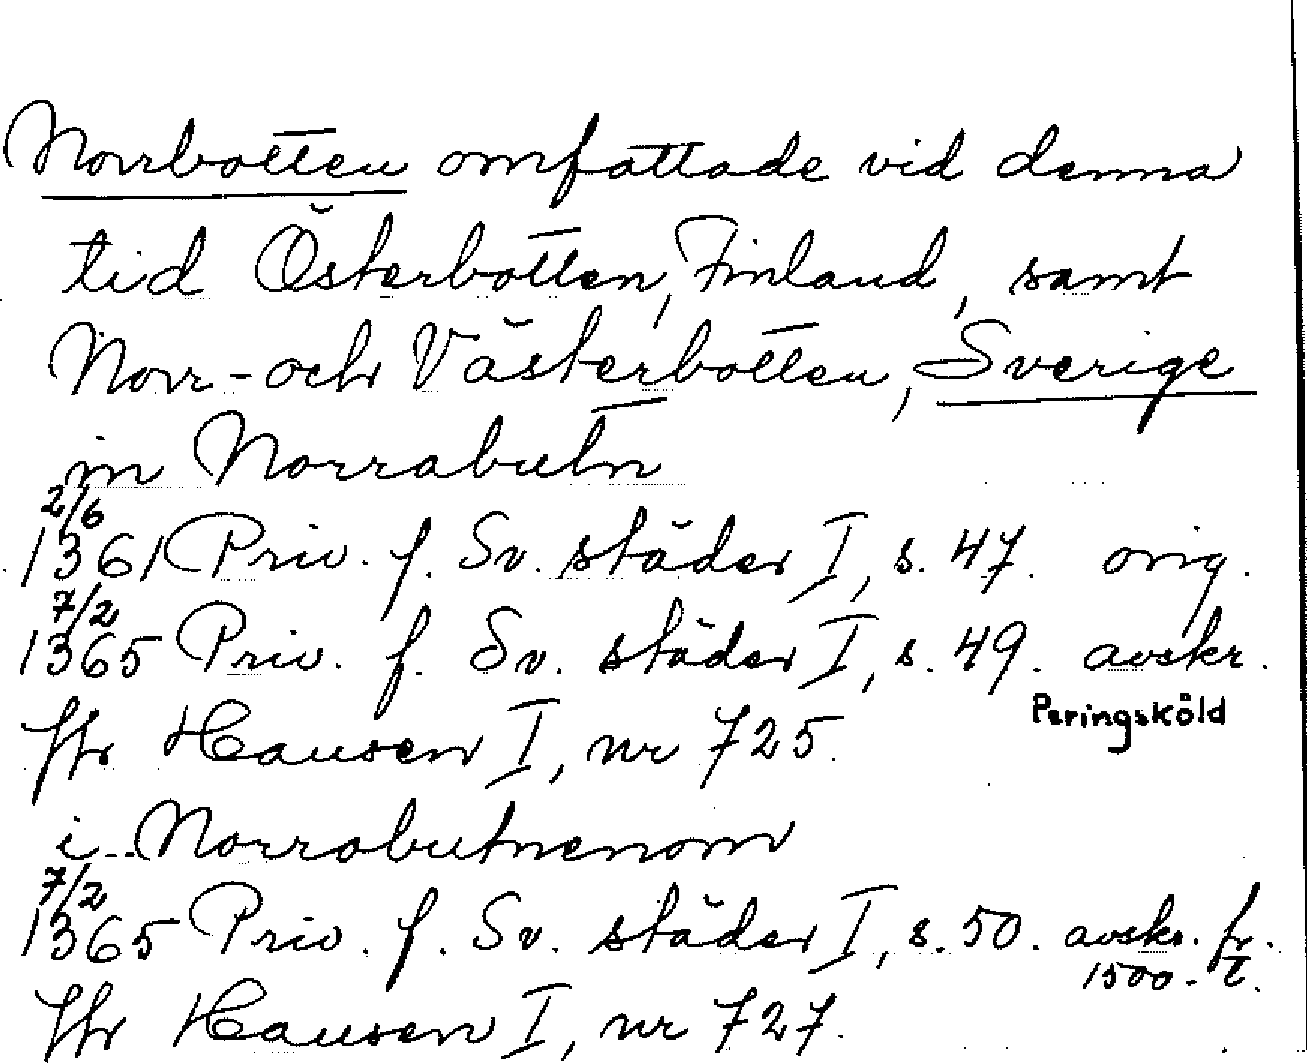 Norrbotten omfattade vid denna
tid Österbotten, Finland, samt
Norr- och Västerbotten, Sverige
in Norrabutn
2/6
1361 Priv. f. Sv. städer I, s. 47. orig.
7/2
1365 Priv. f. Sv. städer I, s. 49. avskr.
Peringsköld
Jfr Hausen I, nr 725.
i Norrabutnenom
7/2
1365 Priv. f. Sv. städer I, s. 50. avskr. fr.
1500-t.
Jfr Hausen I, nr 727.